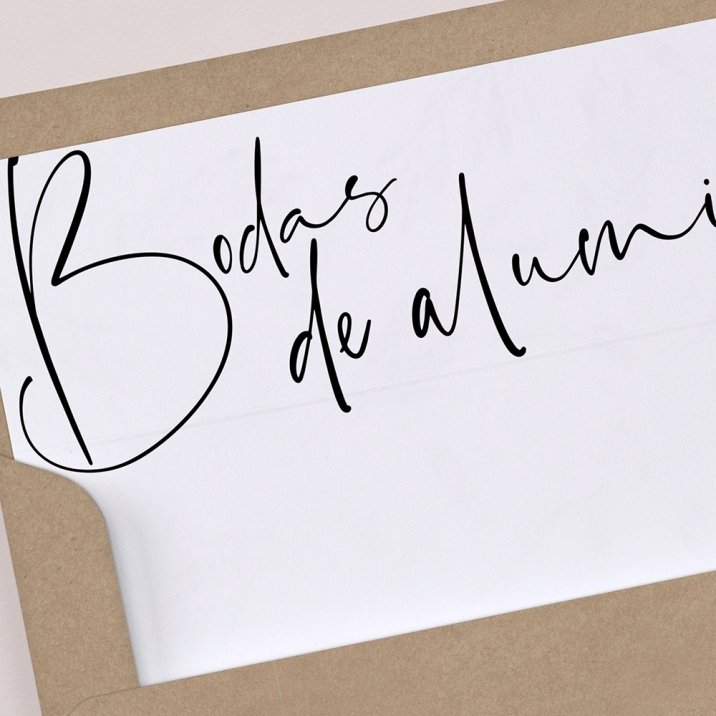 Bodas
de alumi